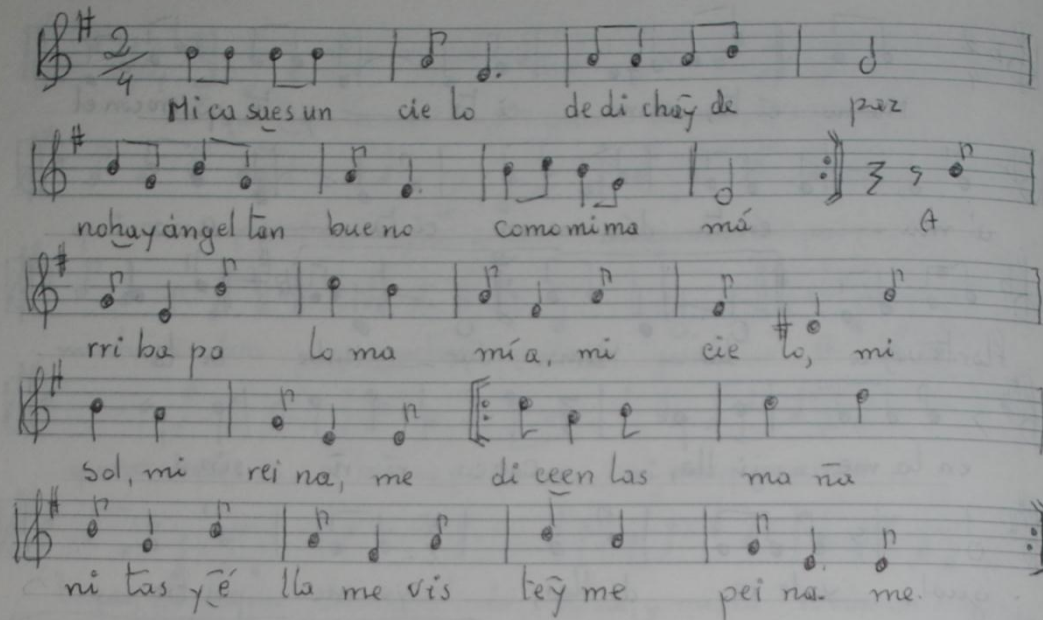 2/4
Mi ca sa es un cie lo de di cha y de paz
no hay ángel tan bue no como mi ma má A
rri ba pa lo ma mía, mi cie lo, mi
sol, mi rei na, me di ce en las ma ña
ni tas y é lla me vis te y me pei na. me.